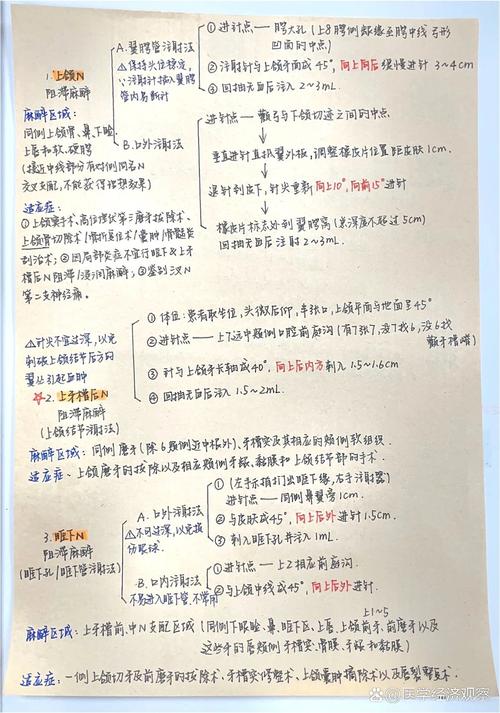 ① 进针点——腭大孔(上8腭侧龈缘至腭中线弓形
凹面的中点)
A. 翼腭管注射法
⚠保持头位稳定,
∵注射针插入翼腭
管内易断针
② 注射针与上颌牙面成45°, 向上向后缓慢进针 3~4cm
③ 回抽无血后注入2~3mL.
1. 上颌N
阻滞麻醉
麻醉区域:
同侧上颌骨、鼻、下睑、
上唇和软、硬腭
(接近中线部分有对侧同名N
交叉支配,不能获得理想效果)
B. 口外注射法
进针点——颧弓与下颌切迹之间的中点.
垂直进针直抵翼外板, 调整橡皮片位置距皮肤1cm.
退针到皮下,针尖重新向上10°,向前15°进针
橡皮片标志处到翼腭窝(总深度不超过5cm)
回抽无血后注射2~3mL.
适应症:
①上颌窦手术、高位埋伏第三磨牙拔除术、
上颌骨切除术/骨折复位术/囊肿/骨髓炎
刮治术; ②因局部炎症不宜行眶下&上牙
槽后N阻滞/浸润麻醉; ③鉴别三叉N
第二支神经痛。
① 体位: 患者取坐位, 头微后仰, 半张口, 上颌平面与地面呈45°
② 进针点——上7远中颊侧口腔前庭沟 (有7找7, 没7找6, 没6找
颧牙槽嵴)
⚠针尖不宜过深,以免
刺破上颌结节后方的
翼丛引起血肿
③ 针与上颌牙长轴成40°, 向上后内方刺入1.5~1.6cm
④ 回抽无血后注入1.5~2mL.
☆2. 上牙槽后N
阻滞麻醉
(上颌结节注射法)
麻醉区域: 同侧磨牙(除6颊侧近中根外)、牙槽突及其相应的颊侧软组织.
适应症: 上颌磨牙的拔除以及相应颊侧牙龈、黏膜和上颌结节部的手术.
① (左手示指扪出眶下缘, 右手注射器)
进针点——同侧鼻翼旁1cm.
A. 口外注射法
⚠不可过深,以免损
伤眼球.
② 与皮肤成45°, 向上后外进针1.5cm.
③ 刺入眶下孔并注入1mL.
3. 眶下N
阻滞麻醉
(眶下孔/眶下管注射法)
B. 口内注射法
不易进入眶下管,不常用
① 进针点——上2相应前庭沟.
② 与上颌中线成45°, 向上后外进针.
上1~5
麻醉区域: 上牙槽前、中N支配区域 (同侧下眼睑、鼻、眶下区、上唇、上颌前牙、前磨牙以及
这些牙的唇颊侧牙槽突、骨膜、牙龈和黏膜)
适应症: 一侧上颌切牙及前磨牙的拔除术、牙槽突修整术、上颌囊肿摘除术以及唇裂整复术.
医学经济观察